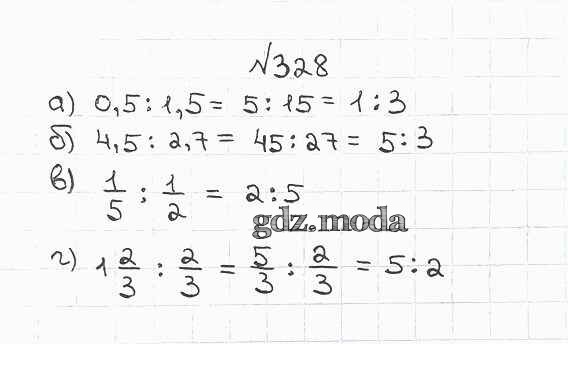 №328
а) 0,5 : 1,5 = 5 : 15 = 1 : 3
б) 4,5 : 2,7 = 45 : 27 = 5 : 3
в) 1/5 : 1/2 = 2 : 5
gdz.moda
г) 1 2/3 : 2/3 = 5/3 : 2/3 = 5 : 2